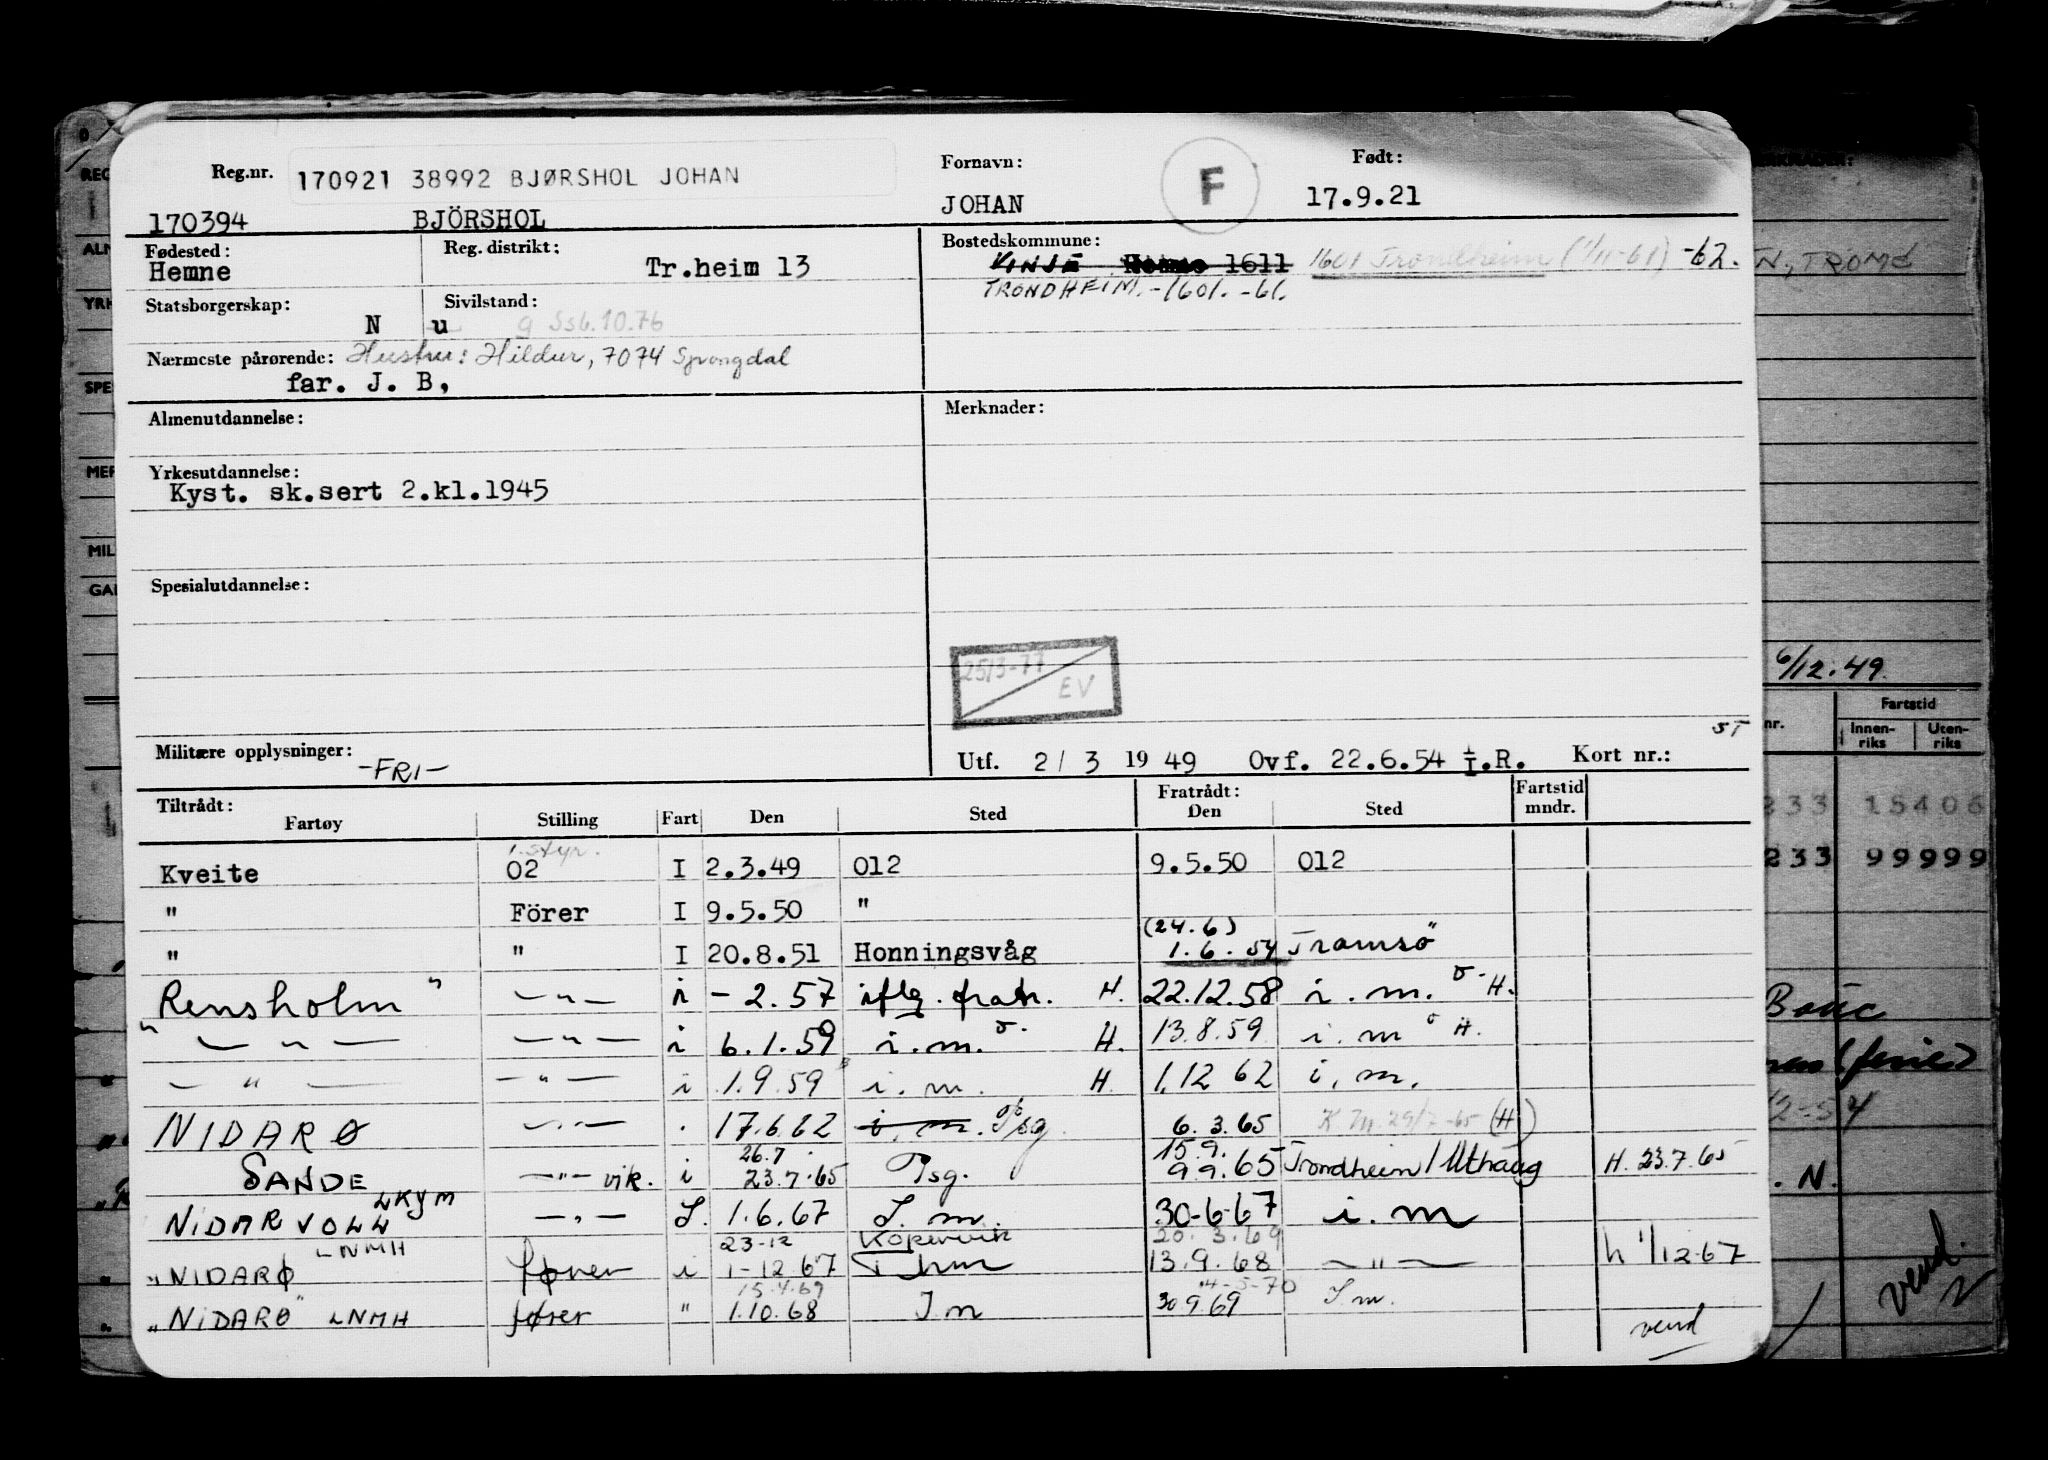 Reg.nr. 170921 38992 BJØRSHOL JOHAN Fornavn: F Født:
170394 BJÖRSHOL JOHAN 17.9.21
Fødested: Reg. distrikt: Bostedskommune:
Hemne Tr.heim 13 VINJE Hemne 1611 1601 Trondheim (1/11-61) -62.
TRONDHEIM. -1601. -61.
Statsborgerskap: Sivilstand:
N u g Ss6.10.76
Nærmeste pårørende: Hustru: Hildur, 7074 Spongdal
far. J. B,
Almenutdannelse: Merknader:
Yrkesutdannelse:
Kyst. sk.sert 2.kl.1945
Spesialutdannelse:
25/3-77 EV
Militære opplysninger: -FRI-
Utf. 2/ 3 19 49 Ovf. 22.6.54 I.R. Kort nr.: ST
Tiltrådt: Fratrådt: Fartstid mndr.
Fartøy Stilling Fart Den Sted Den Sted
1. styr.
Kveite 02 I 2.3.49 012 9.5.50 012
" Förer I 9.5.50 "
(24.6)
" " I 20.8.51 Honningsvåg 1.6.54 Tromsö
Rensholm " — " — i - 2.57 iflg. fratr. H. 22.12.58 i. m. H.
— " — — " — i 6.1.59 i. m. H. 13.8.59 i. m H.
— " — — " — i 1.9.59 i. m. H 1.12 62 i. m.
NIDARØ — " — . 17.6.62 i. m. Psg. 6.3.65 K m. 29/7-65 (H)
26.7 15.9.
SANDE — " — vik. i 23.7.65 Psg. 9.9.65 Trondheim/Uthaug H. 23.7.65
LKYM
NIDARVOLL — " — I. 1.6.67 I. m. 30-6-67 i. m
LNMH 23-12 Kopervik 20.3.69
"NIDARØ fører i 1-12 67 13.9.68 — " — h 1/12-67
15.4.69 4-5-70
"NIDARØ" LNMH fører " 1.10.68 I.m 30 9.69 I.m.
vend
REG
ALM
YRK
SPE
MER
MIL
GAR
6/12.49
nr. Fartstid
Innenriks Utenriks
233 15406
233 99999
(ferie)
12-54
. N.
vend